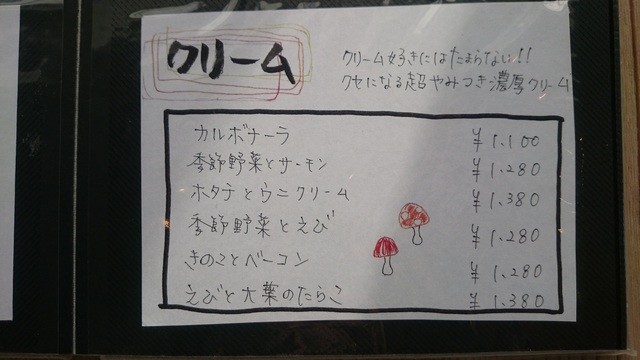 クリーム
クリーム好きにはたまらない!!
クセになる超やみつき濃厚クリーム
カルボナーラ ¥1,100
季節野菜とサーモン ¥1,280
ホタテとウニクリーム ¥1,380
季節野菜とえび ¥1,280
きのことベーコン ¥1,280
えびと大葉のたらこ ¥1,380